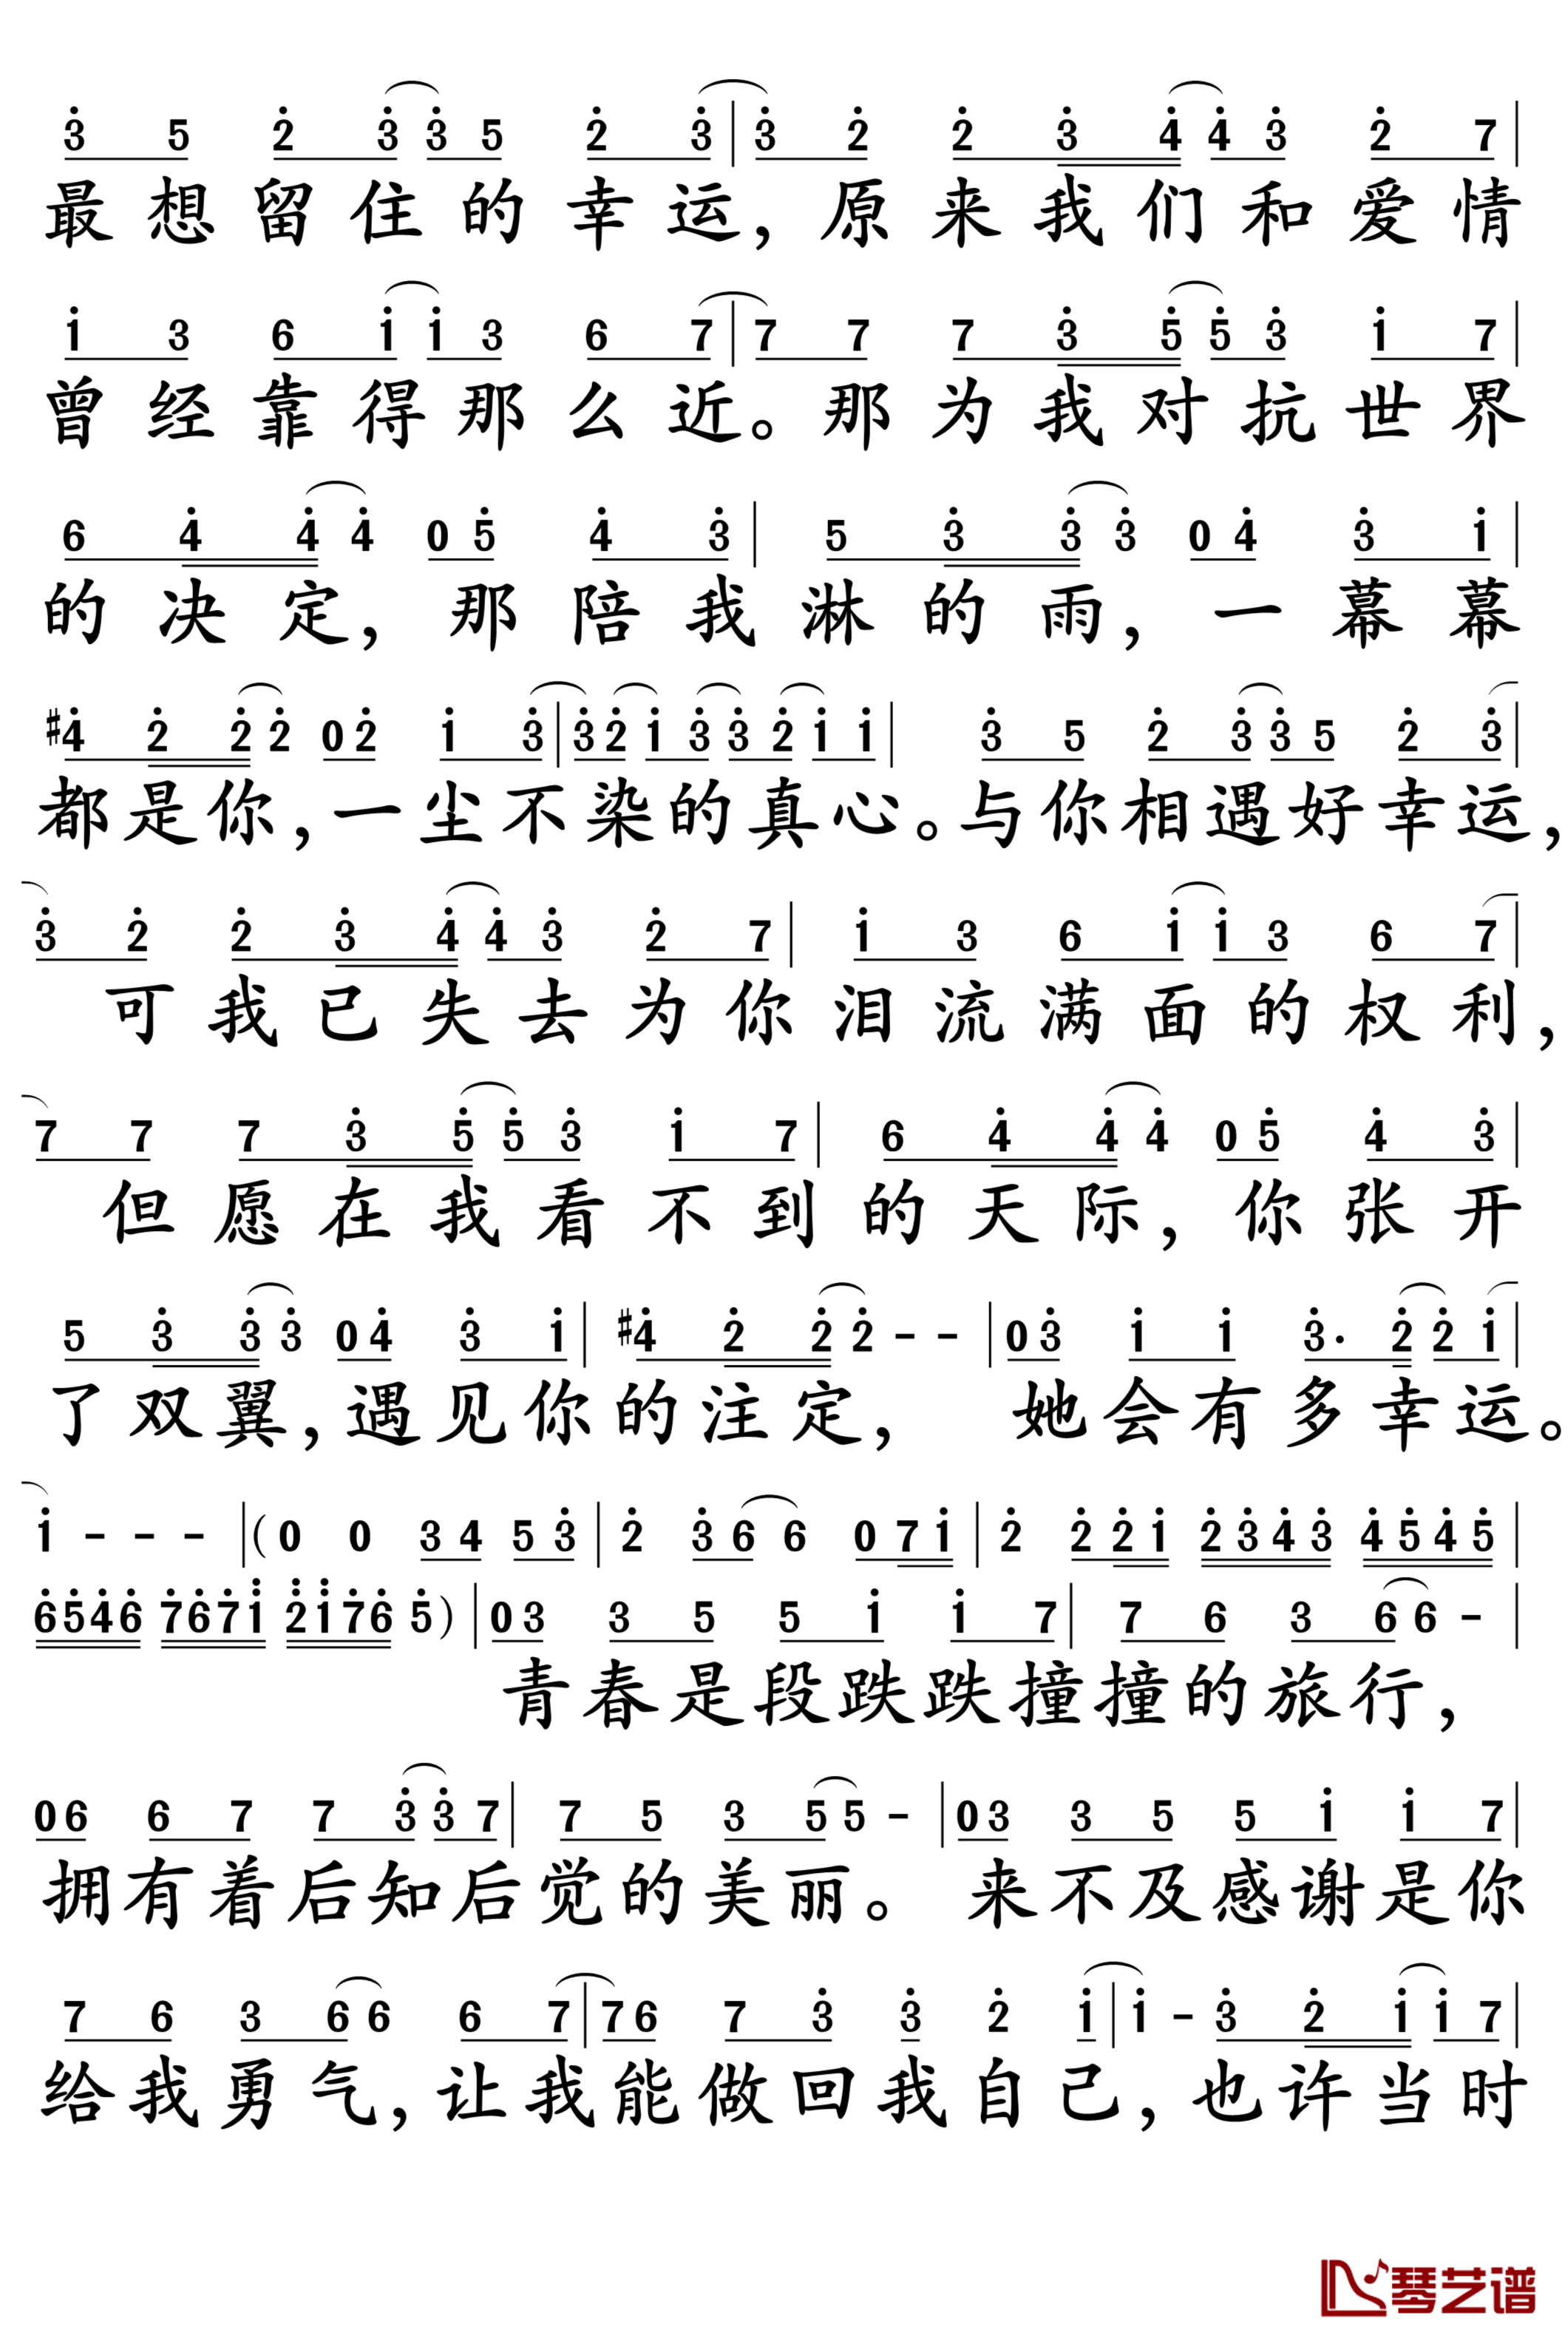 3̇ 5 2̇ 3̇ 3̇ 5 2̇ 3̇ | 3̇ 2̇ 2̇ 3̇ 4̇ 4̇ 3̇ 2̇ 7 |
最想留住的幸运，原来我们和爱情
1̇ 3 6 1̇ 1̇ 3 6 7 | 7 7 7 3̇ 5̇ 5̇ 3̇ 1̇ 7 |
曾经靠得那么近。那为我对抗世界
6 4̇ 4̇ 4̇ 0 5̇ 4̇ 3̇ | 5 3̇ 3̇ 3̇ 0 4̇ 3̇ 1̇ |
的决定，那陪我淋的雨，一幕幕
#4̇ 2̇ 2̇ 2̇ 0 2̇ 1̇ 3̇ | 3̇ 2̇ 1̇ 3̇ 3̇ 2̇ 1̇ 1̇ | 3̇ 5 2̇ 3̇ 3̇ 5 2̇ 3̇ |
都是你，一尘不染的真心。与你相遇好幸运，
3̇ 2̇ 2̇ 3̇ 4̇ 4̇ 3̇ 2̇ 7 | 1̇ 3 6 1̇ 1̇ 3 6 7 |
可我已失去为你泪流满面的权利，
7 7 7 3̇ 5̇ 5̇ 3̇ 1̇ 7 | 6 4̇ 4̇ 4̇ 0 5̇ 4̇ 3̇ |
但愿在我看不到的天际，你张开
5 3̇ 3̇ 3̇ 0 4̇ 3̇ 1̇ | #4̇ 2̇ 2̇ 2̇ - - | 0 3̇ 1̇ 1̇ 3̇· 2̇ 2̇ 1̇ |
了双翼，遇见你的注定，她会有多幸运。
1̇ - - - | (0 0 3 4 5 3̇ | 2̇ 3̇ 6 6 0 7 1̇ | 2̇ 2̇ 2̇ 1̇ 2̇ 3̇ 4̇ 3̇ 4̇ 5̇ 4̇ 5̇ |
6̇ 5̇ 4̇ 6̇ 7̇ 6̇ 7̇ 1̈ 2̈ 1̈ 7̇ 6̇ 5̇) | 0 3 3 5 5 1̇ 1̇ 7 | 7 6 3 6 6 - |
青春是段跌跌撞撞的旅行，
0 6 6 7 7 3̇ 3̇ 7 | 7 5 3 5 5 - | 0 3 3 5 5 1̇ 1̇ 7 |
拥有着后知后觉的美丽。来不及感谢是你
7 6 3 6 6 6 7 | 7 6 7 3̇ 3̇ 2̇ 1̇ | 1̇ - 3̇ 2̇ 1̇ 1̇ 7 |
给我勇气，让我能做回我自己，也许当时
琴艺谱